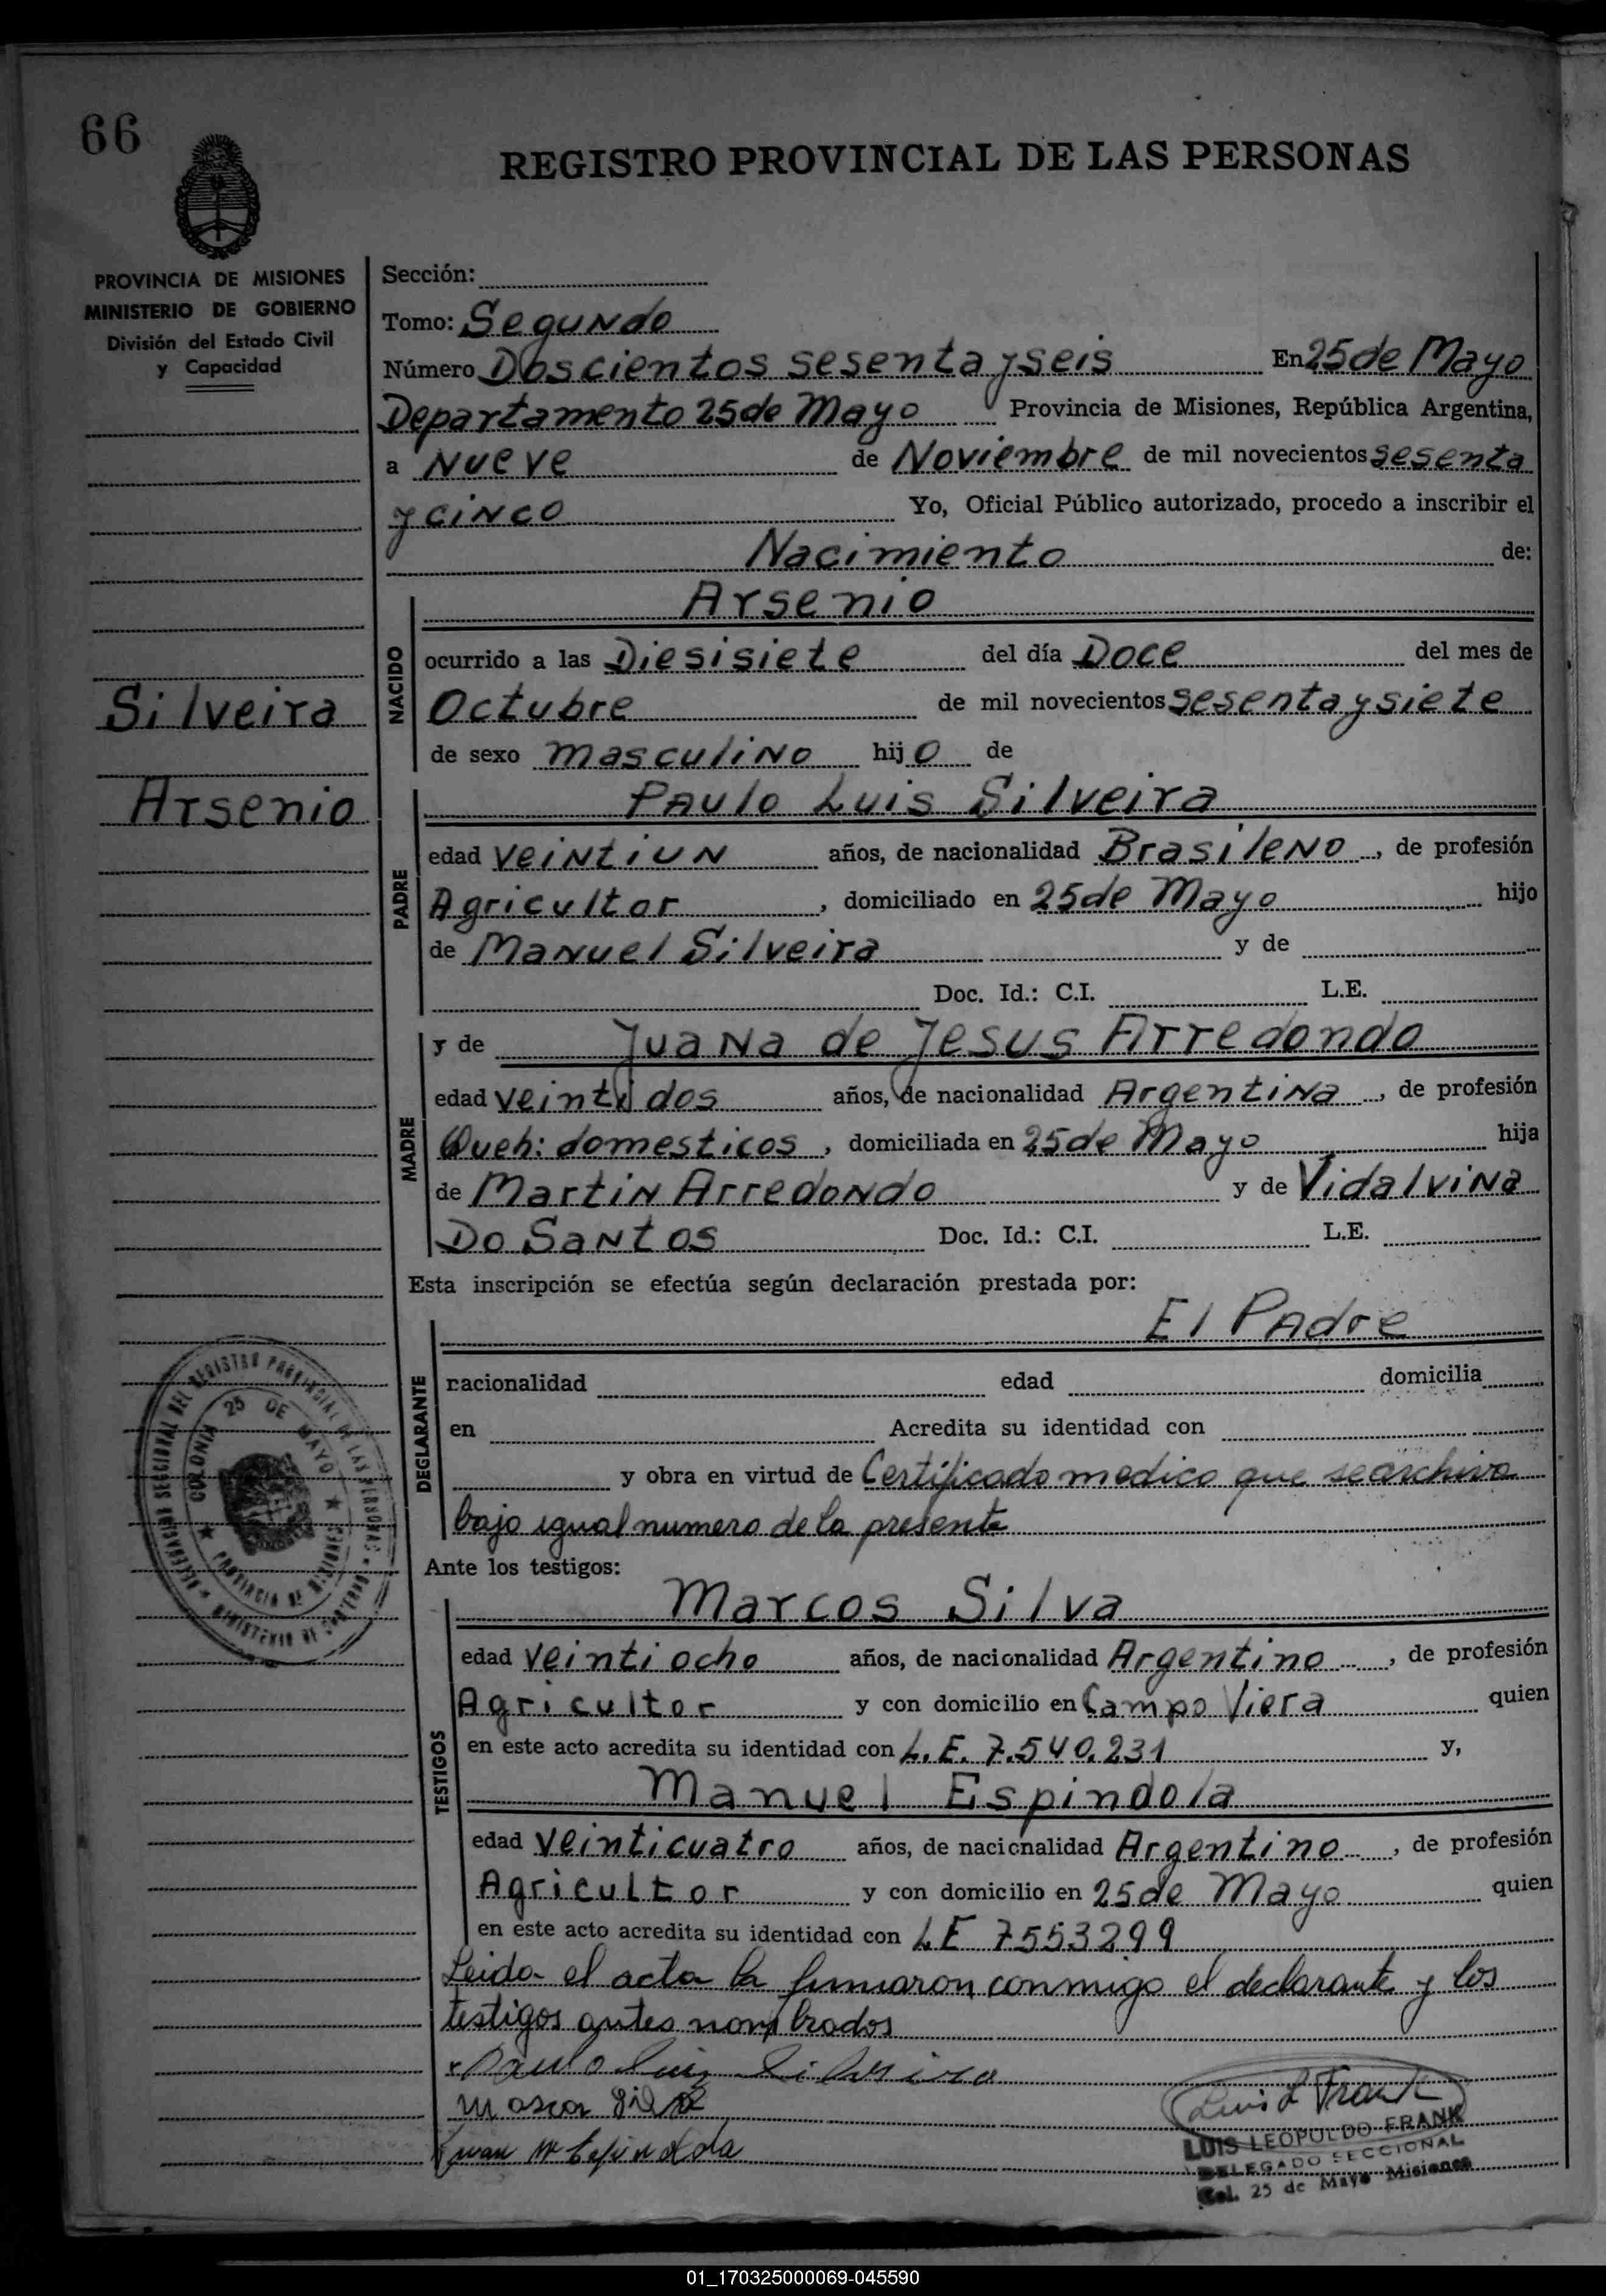 66
REGISTRO PROVINCIAL DE LAS PERSONAS
PROVINCIA DE MISIONES
MINISTERIO DE GOBIERNO
División del Estado Civil
y Capacidad
Sección:
Tomo: Segundo
Número Doscientos sesenta y seis En 25 de Mayo
Departamento 25 de Mayo Provincia de Misiones, República Argentina,
a Nueve de Noviembre de mil novecientos sesenta
y cinco Yo, Oficial Público autorizado, procedo a inscribir el
Nacimiento de:
NACIDO
Arsenio
ocurrido a las Diesisiete del día Doce del mes de
Octubre de mil novecientos sesenta y siete
de sexo masculino hijo de
Silveira
Arsenio
PADRE
Paulo Luis Silveira
edad veintiun años, de nacionalidad Brasileno, de profesión
Agricultor, domiciliado en 25 de Mayo hijo
de Manuel Silveira y de
Doc. Id.: C.I. L.E.
MADRE
y de Juana de Jesus Arredondo
edad veinti dos años, de nacionalidad Argentina, de profesión
Queh: domesticos, domiciliada en 25 de Mayo hija
de Martin Arredondo y de Vidalvina
Do Santos Doc. Id.: C.I. L.E.
Esta inscripción se efectúa según declaración prestada por:
DECLARANTE
El Padre
nacionalidad edad domicilia
en Acredita su identidad con
y obra en virtud de Certificado medico que se archiva
bajo igual numero de la presente
COLONIA 25 DE MAYO
PROVINCIA DE MISIONES
Ante los testigos:
TESTIGOS
Marcos Silva
edad veinti ocho años, de nacionalidad Argentino, de profesión
Agricultor y con domicilio en Campo Viera quien
en este acto acredita su identidad con L.E. 7.540.231 y,
Manuel Espindola
edad veinticuatro años, de nacionalidad Argentino, de profesión
Agricultor y con domicilio en 25 de Mayo quien
en este acto acredita su identidad con LE 7553299
Leida el acta la firmaron conmigo el declarante y los
testigos antes nombrados
Paulo Luiz Silveira
Luis L Frank
LUIS LEOPOLDO FRANK
DELEGADO SECCIONAL
Col. 25 de Mayo Misiones
01_170325000069-045590